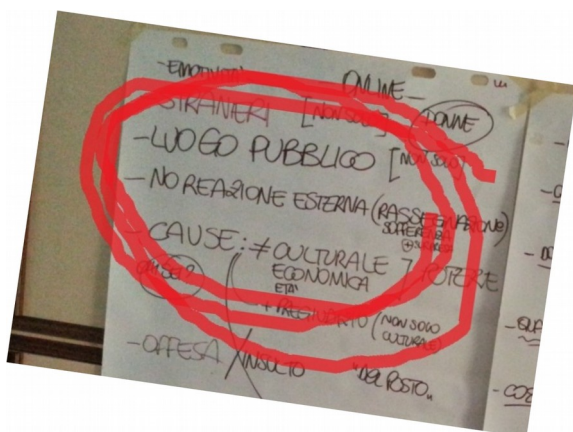 - EMOTIVITÀ ONLINE -
- STRANIERI [NON SOLO] DONNE
- LUOGO PUBBLICO [NON SOLO]
- NO REAZIONE ESTERNA (RASSEGNAZIONE)
SOFFERENZA
- CAUSE: ≠ CULTURALE ] POTERE
ECONOMICA
ETÀ
+ PREGIUDIZIO (NON SOLO
CULTURALE)
- OFFESA / INSULTO "DEL POSTO"